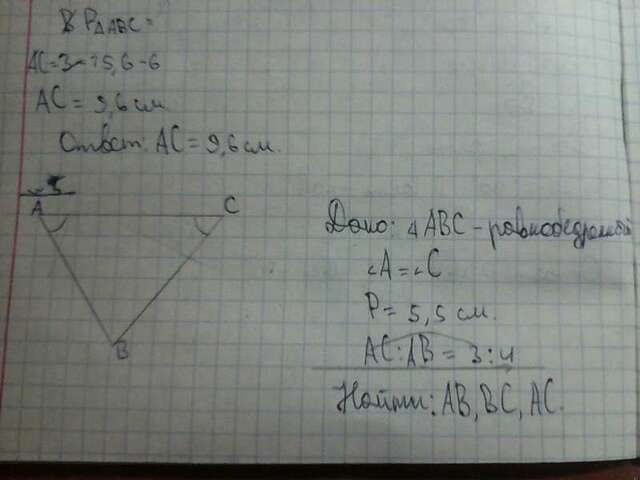 P△ABC =
AC = 15,6 - 6
AC = 9,6 см
Ответ: AC = 9,6 см.
№5
A C
B
Дано: △ABC - равнобедренный
∠A = ∠C
P = 5,5 см.
AC : AB = 3 : 4
Найти: AB, BC, AC.